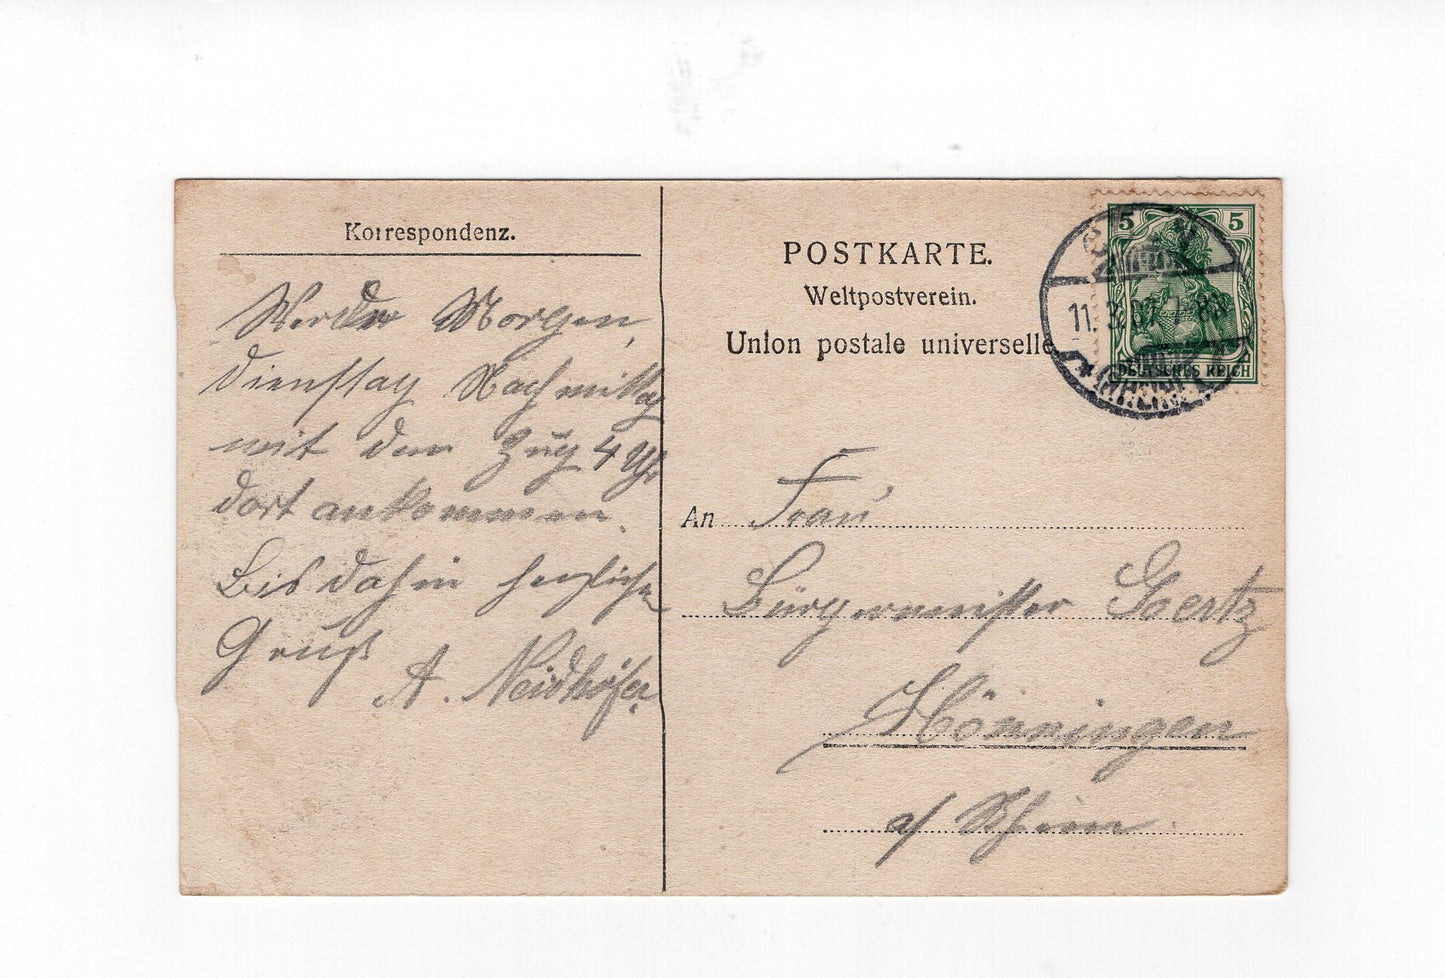 Korrespondenz.
Werde Morgen,
Dienstag Nachmittag
mit dem Zug 4 Uhr
dort ankommen.
Bis dahin herzlichen
Gruß
A. Neidhöfer
POSTKARTE.
Weltpostverein.
Union postale universelle
5 5
DEUTSCHES REICH
11. 3. 07.
(RHEIN)
An Frau
Bürgermeister Goertz
Hönningen
a/ Rhein